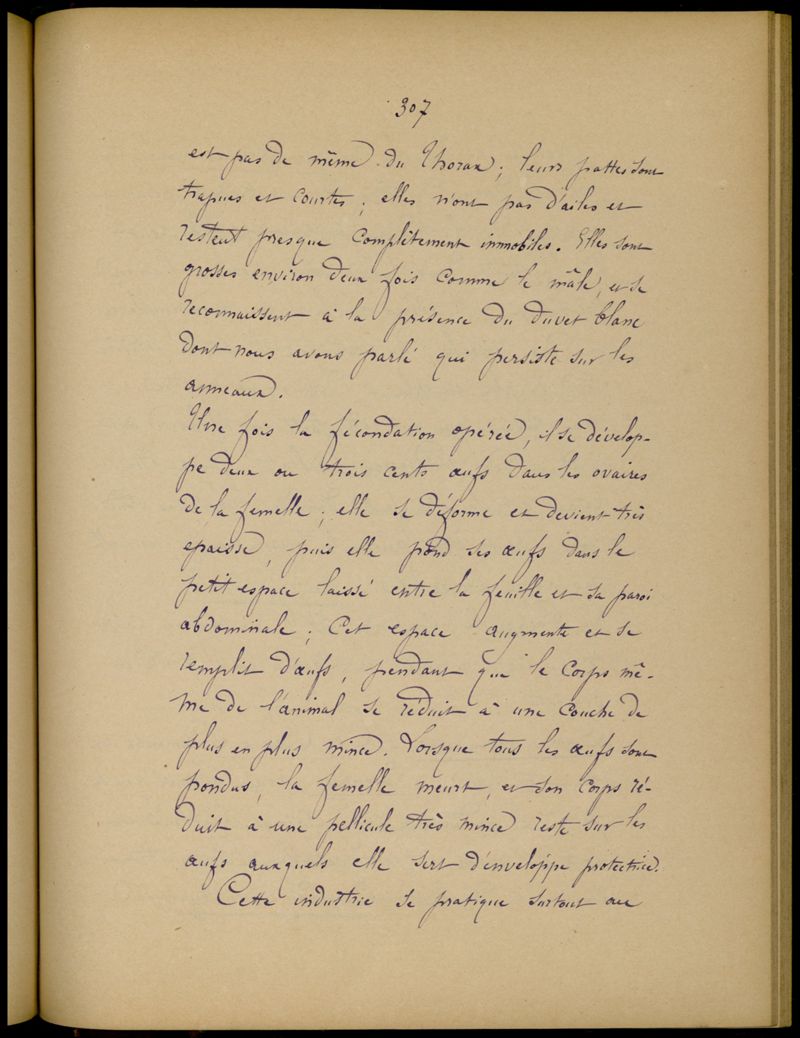 307
est pas de même du Thorax ; leurs pattes sont
trapues et courtes ; elles n'ont pas d'ailes et
restent presque complètement immobiles. Elles sont
grosses environ deux fois comme le mâle, et se
reconnaissent à la présence du duvet blanc
dont nous avons parlé qui persiste sur les
anneaux.
Une fois la fécondation opérée, il se dévelop-
pe deux ou trois cents œufs dans les ovaires
de la femelle ; elle se déforme et devient très
épaisse, puis elle pond ses œufs dans le
petit espace laissé entre la feuille et sa paroi
abdominale ; Cet espace augmente et se
remplit d'œufs, pendant que le corps mê-
me de l'animal se réduit à une couche de
plus en plus mince. Lorsque tous les œufs sont
pondus, la femelle meurt, et son corps ré-
duit à une pellicule très mince reste sur les
œufs auxquels elle sert d'enveloppe protectrice.
Cette industrie se pratique surtout au